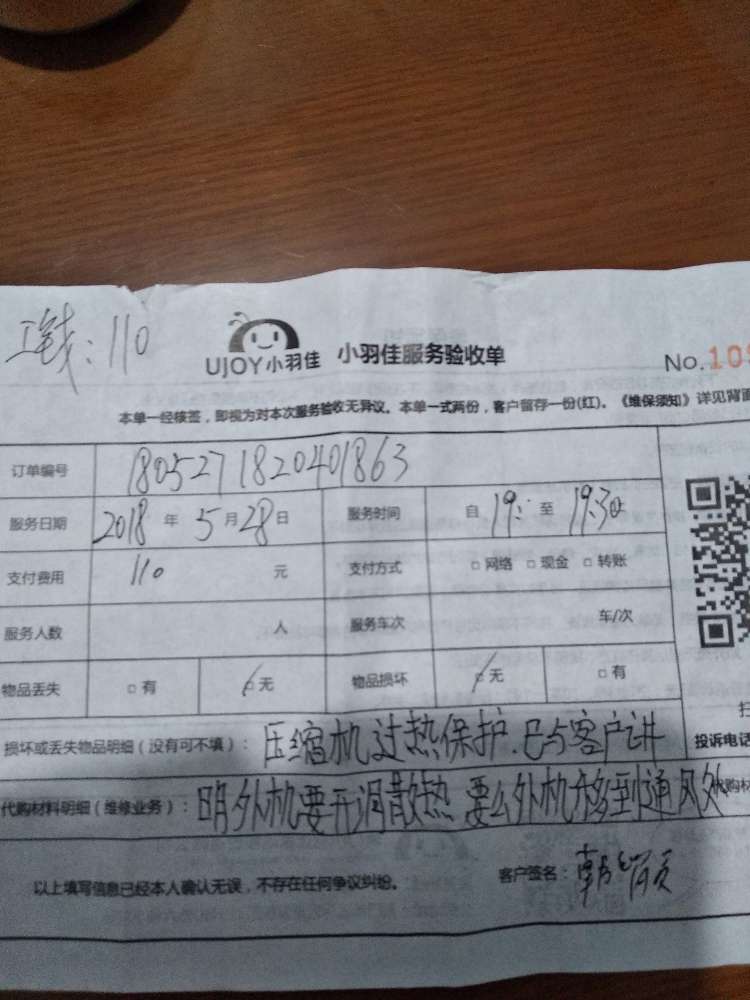 工钱:110
UJOY小羽佳 小羽佳服务验收单 No.10
本单一经核签,即视为对本次服务验收无异议。本单一式两份,客户留存一份(红)。《维保须知》详见背面
订单编号 1805271820401863
服务日期 2018年5月28日 服务时间 自19:至19:30
支付费用 110元 支付方式 □网络 □现金 □转账
服务人数 人 服务车次 车/次
物品丢失 □有 □无 物品损坏 □无 □有
损坏或丢失物品明细(没有可不填): 压缩机过热保护.已与客户讲
投诉电话
代购材料明细(维修业务): 明外机要开调散热 要么外机移到通风处
代购材
以上填写信息已经本人确认无误,不存在任何争议纠纷。 客户签名: